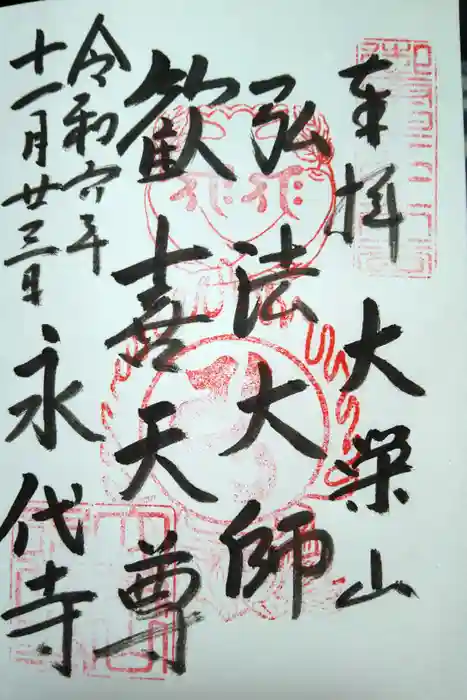 奉拝 大榮山
弘法大師
歓喜天尊
令和六年
十一月廿三日 永代寺